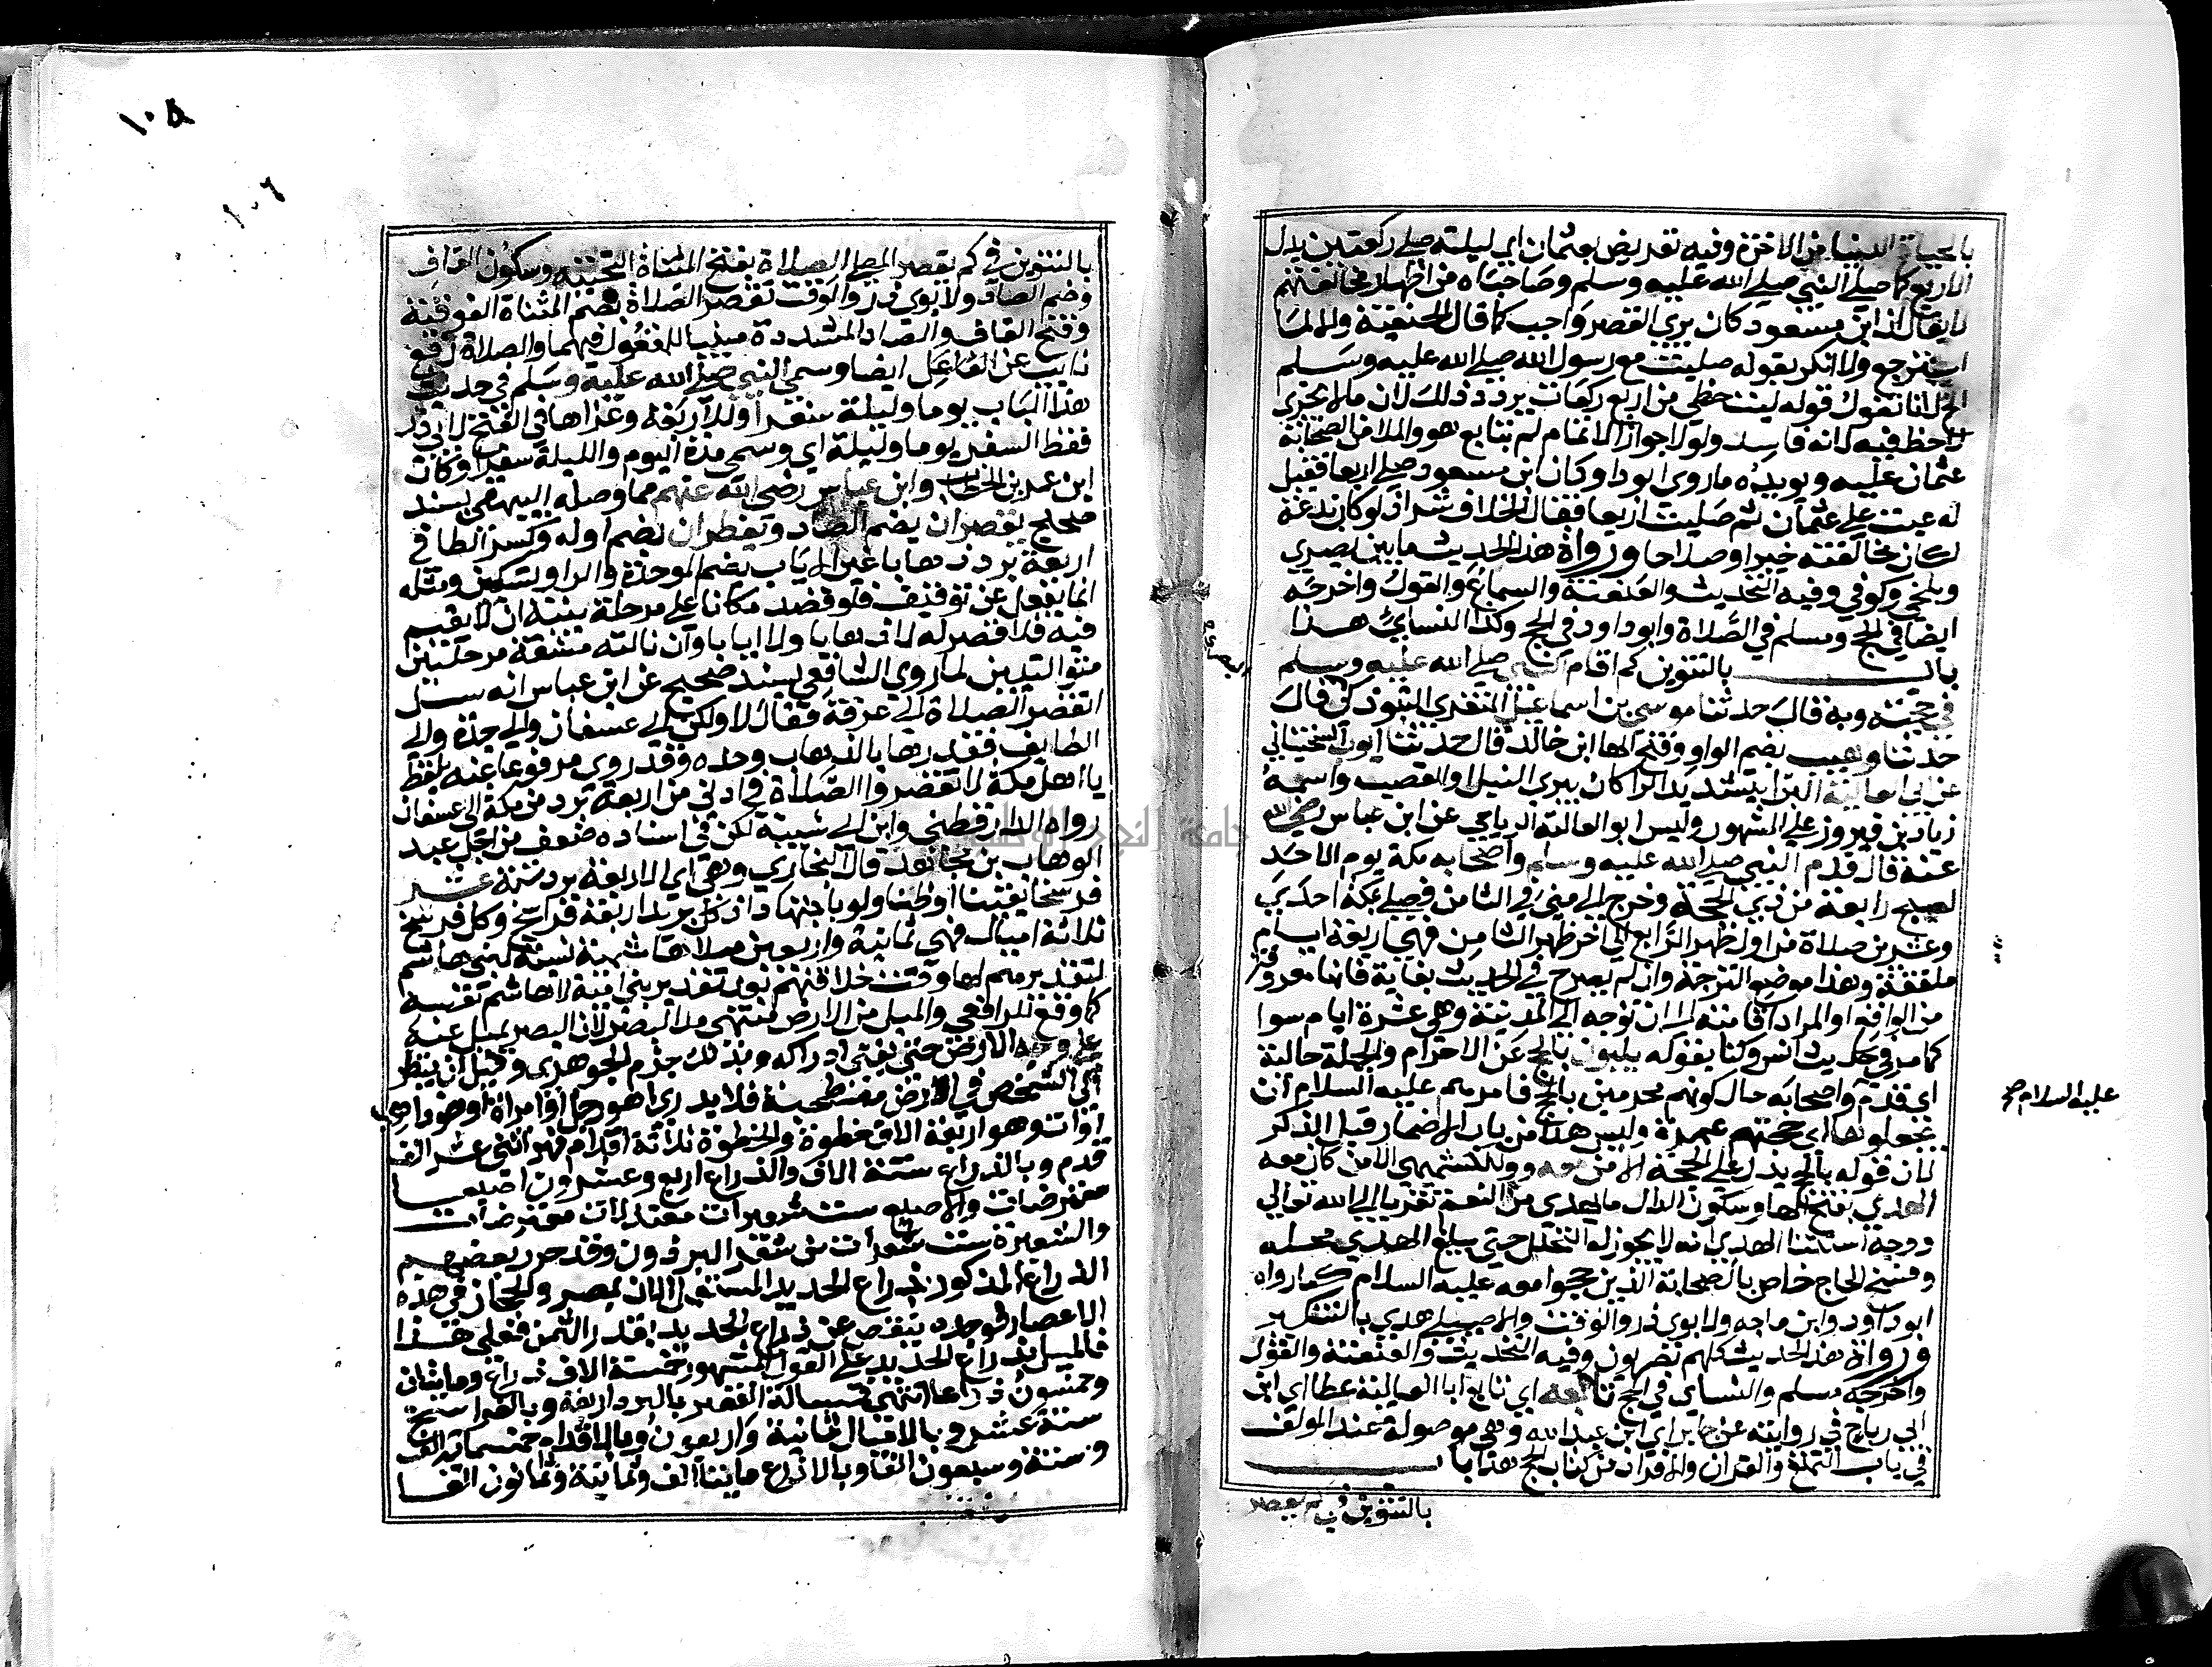 بالحياة الدنيا من الاخرة وفيه تعريض بعثمان اي ليلته صلي ركعتين بدل
الاربع كما صلي النبي صلي الله عليه وسلم وصاحباه من اظهار مخالفتهم
لا يقال ان ابن مسعود كان يري القصر واجب كما قال الحنفية والا لما
استرجع ولا انكر بقوله صليت مع رسول الله صلي الله عليه وسلم
الخ لانا نقول قوله ليت حظي من اربع ركعات يرد ذلك لان ما لا يجزي
لا حظ فيه لانه فاسد ولولا جواز الاتمام لم يتابع هو والملا من الصحابة
عثمان عليه ويويده ما روي ابو داود ان ابن مسعود صلي اربعا فقيل
له عبت علي عثمان ثم صليت اربعا فقال الخلاف شر اذ لو كان بدعة
لكان مخالفته خيرا وصلاحا ورواة هذا الحديث ما بين بصري
وبلخي وكوفي وفيه التحديث والعنعنة والسماع والقول واخرجه
ايضا في الحج ومسلم في الصلاة وابو داود في الحج وكذا النسائي هذا
باب بالتنوين كم اقام النبي صلي الله عليه وسلم
في حجته وبه قال حدثنا موسي بن اسماعيل المنقري التبوذكي قال
حدثنا وهيب بضم الواو وفتح الها ابن خالد قال حدثنا ايوب السختياني
عن ابي العالية البرا بتشديد الرا كان يبري النبل او القصب واسمه
زياد بن فيروز علي المشهور وليس ابو العالية الرياحي عن ابن عباس رضي الله
عنه قال قدم النبي صلي الله عليه وسلم واصحابه مكة يوم الاحد
لصبح رابعة من ذي الحجة وخرج الي مني في الثامن فصلي بمكة احدي
وعشرين صلاة من اول ظهر الرابع الي اخر ظهر الثامن فهي اربعة ايام
ملفقة وهذا موضع الترجمة وان لم يصرح في الحديث بغاية فانها معروفة
من الواقع او المراد اقامته الي ان توجه الي المدينة وهي عشرة ايام سوا
كما مر في حديث انس وكنا بقوله يلبون بالحج عن الاحرام والجملة حالية
اي قدم واصحابه حال كونهم محرمين بالحج فامرهم عليه السلام ان
يجعلوها اي حجتهم عمرة وليس هذا من باب الاضمار قبل الذكر
لان قوله بالحج يدل علي الحجة الا من معه وللكشميهني الا من كان معه
الهدي بفتح الها وسكون الدال ما يهدي من النعم تقربا الي الله تعالي
ووجه استثنا الهدي انه لا يجوز له التحلل حتي يبلغ الهدي محله
وفسخ الحاج خاص بالصحابة الذين حجوا معه عليه السلام كما رواه
ابو داود وابن ماجه ولابوي ذر والوقت والاصيلي هدي بالتنكير
ورواة هذا الحديث كلهم بصريون وفيه التحديث والعنعنة والقول
واخرجه مسلم والنساي في الحج تابعه اي تابع ابا العالية عطا اي ابن
ابي رباح في روايته عن جابر اي ابن عبد الله وهي موصولة عند المولف
في باب التمتع والقران والافراد من كتاب الحج هذا باب
بالتنوين في كم يقصر
عليه السلام صح
١٠٦
بالتنوين في كم يقصر المصلي الصلاة بفتح المثناة التحتية وسكون القاف
وضم الصاد ولابوي ذر والوقت تقصر الصلاة بضم المثناة الفوقية
وفتح القاف والصاد المشددة مبنيا للمفعول فيهما والصلاة رفع
نايب عن الفاعل ايضا وسمي النبي صلي الله عليه وسلم في حديث
هذا الباب يوما وليلة سفرا وللاربعة وعزاها في الفتح لابي ذر
فقط السفر يوما وليلة اي وسمي مدة اليوم والليلة سفرا وكان
ابن عمر بن الخطاب وابن عباس رضي الله عنهم مما وصله البيهقي بسند
صحيح يقصران بضم الصاد ويفطران بضم اوله وكسر الطا في
اربعة برد ذهابا غير الاياب بضم الموحدة والرا وتسكن ومثله
انما يفعل عن توقيف فلو قصد مكانا علي مرحلة بنية ان لا يقيم
فيه فلا قصر له لا ذهابا ولا ايابا وان نالته مشقة مرحلتين
متواليتين لما روي الشافعي بسند صحيح عن ابن عباس انه سيل
اتقصر الصلاة الي عرفة فقال لا ولكن الي عسفان والي جدة والي
الطايف فقدرها بالذهاب وحده وقد روي مرفوعا عنه بلفظ
يا اهل مكة لا تقصروا الصلاة في ادني من اربعة برد من مكة الي عسفان
رواه الدارقطني وابن ابي شيبة لكن في اسناده ضعف من اجل عبد
الوهاب بن مجاهد قال البخاري وهي اي الاربعة برد ستة عشر
فرسخا يقينا او ظنا ولو باجتهاد اذ كل بريد اربعة فراسخ وكل فرسخ
ثلاثة اميال فهي ثمانية واربعون ميلا هاشمية نسبة لبني هاشم
لتقديرهم لها وقت خلافتهم بعد تقدير بني امية لا هاشم نفسه
كما وقع للرافعي والميل من الارض منتهي مد البصر لان البصر يميل عنه
علي وجه الارض حتي يفني ادراكه وبذلك جزم الجوهري وقيل ان ينظر
الي الشخص في ارض مسطحة فلا يدري اهو رجل او امراة او هو ذاهب
او ات وهو اربعة الاف خطوة والخطوة ثلاثة اقدام فهو اثني عشر الف
قدم وبالذراع ستة الاف والذراع اربع وعشرون اصبعا
معترضات والاصبع ست شعيرات معتدلات معترضات
والشعيرة ست شعرات من شعر البرذون وقد حرر بعضهم
الذراع المذكور بذراع الحديد المستعمل الان بمصر والحجاز في هذه
الاعصار فوجده ينقص عن ذراع الحديد بقدر الثمن فعلي هذا
فالميل بذراع الحديد علي القول المشهور خمسة الاف ذراع ومايتان
وخمسون ذراعا انتهي فمسافة القصر بالبرد اربعة وبالفراسخ
ستة عشر وبالاميال ثمانية واربعون وبالاقدام خمسماية الف
وستة وسبعون الفا وبالاذرع مايتا الف وثمانية وثمانون الفا